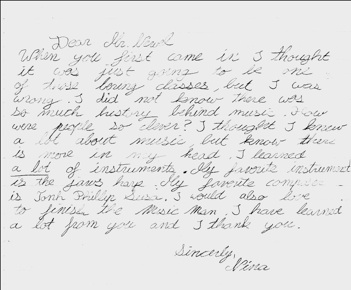 Dear Mr.
When you first came in I thought
it was just going to be one
of those boring classes, but I was
wrong. I did not know there was
so much history behind music. How
were people so clever? I thought I knew
a lot about music but know there
is more in my head. I learned
a lot of instruments. My favorite instrument
is the jaws harp. My favorite
is Jonh Phillip Susa. I would also love
to finish the Music Man. I have learned
a lot from you and I thank you.
Sincerly,
Nina